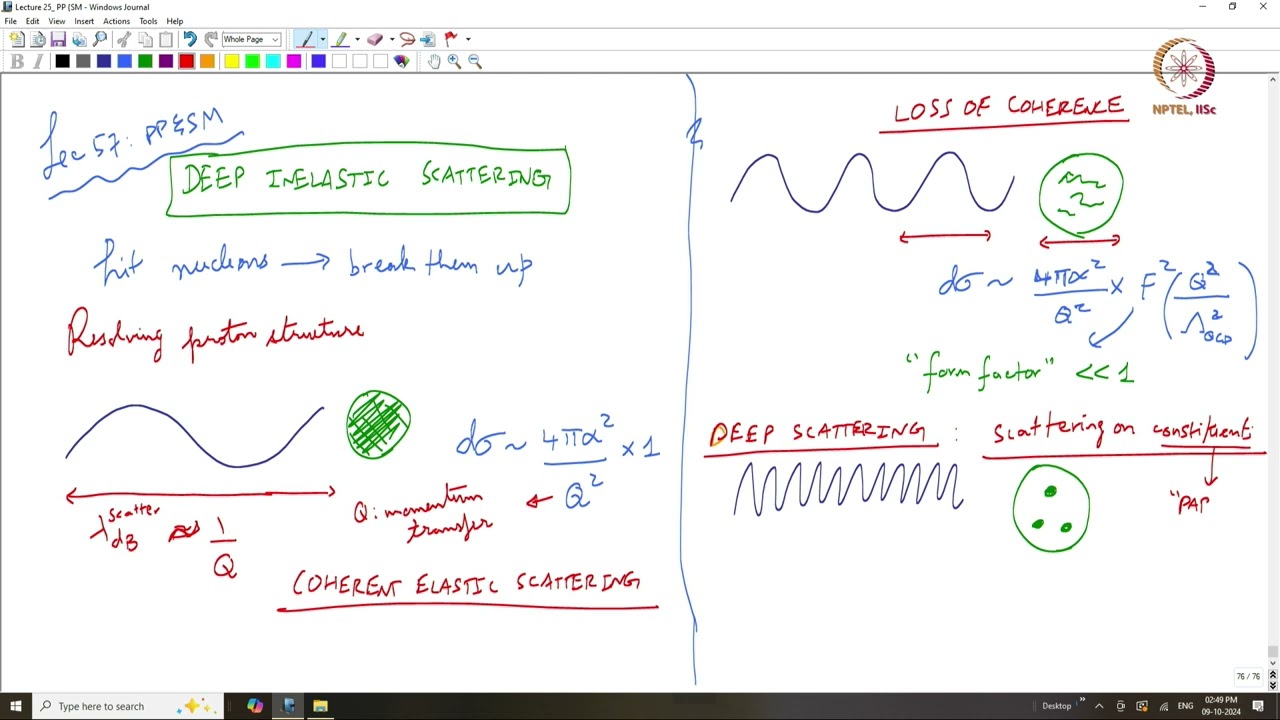 Lecture 25_ PP (SM - Windows Journal
File Edit View Insert Actions Tools Help
Whole Page
B I
NPTEL, IISc
Lec 57: PP&SM
DEEP INELASTIC SCATTERING
hit nucleons → break them up
Resolving proton structure
dσ ~ 4πα²/Q² × 1
λ_dB^scatter ≈ 1/Q
Q: momentum transfer ←
COHERENT ELASTIC SCATTERING
LOSS OF COHERENCE
dσ ~ 4πα²/Q² × F²(Q²/Λ²_QCD)
"form factor" << 1
DEEP SCATTERING : scattering on constituent
"PAP
76 / 76
Type here to search
Desktop
ENG
02:49 PM
09-10-2024